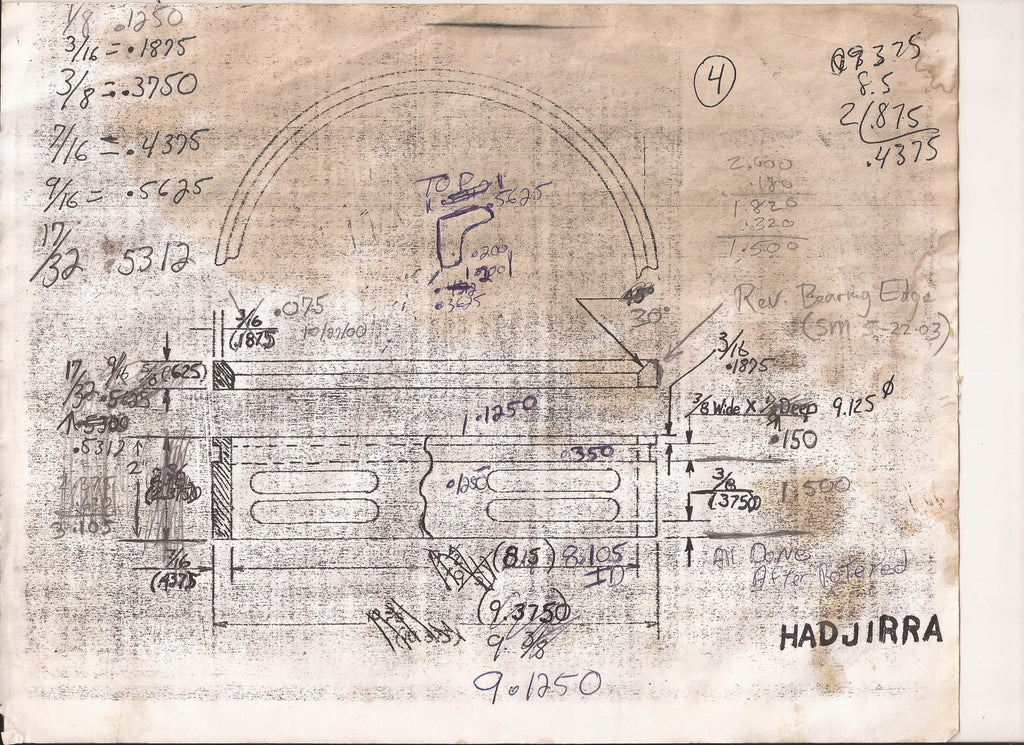 1/8 .1250
3/16 = .1875
3/8 = .3750
7/16 = .4375
9/16 = .5625
17/32 .5312
4
9375
8.5
2 .875
.4375
2.000
.180
1.820
.320
1.500
TOP
.5625
.200
1.2001
.3625
.075
3/16
(.1875)
10/27/00
45°
30°
Rev. Bearing Edge
(SM 5-22-03)
3/16
.1875
17/32 9/16 5/8 (.625)
.5625
.5300
.5312
1.1250
3/8 Wide X 1/2 Deep 9.125 ø
.150
.350
.1250
3/8
(.3750)
1.500
2.375
3.105
7/16
(.4375)
(8.5) 8.105
ID
All Done
After Rotered
(9.3750)
9 3/8
HADJIRRA
9.1250